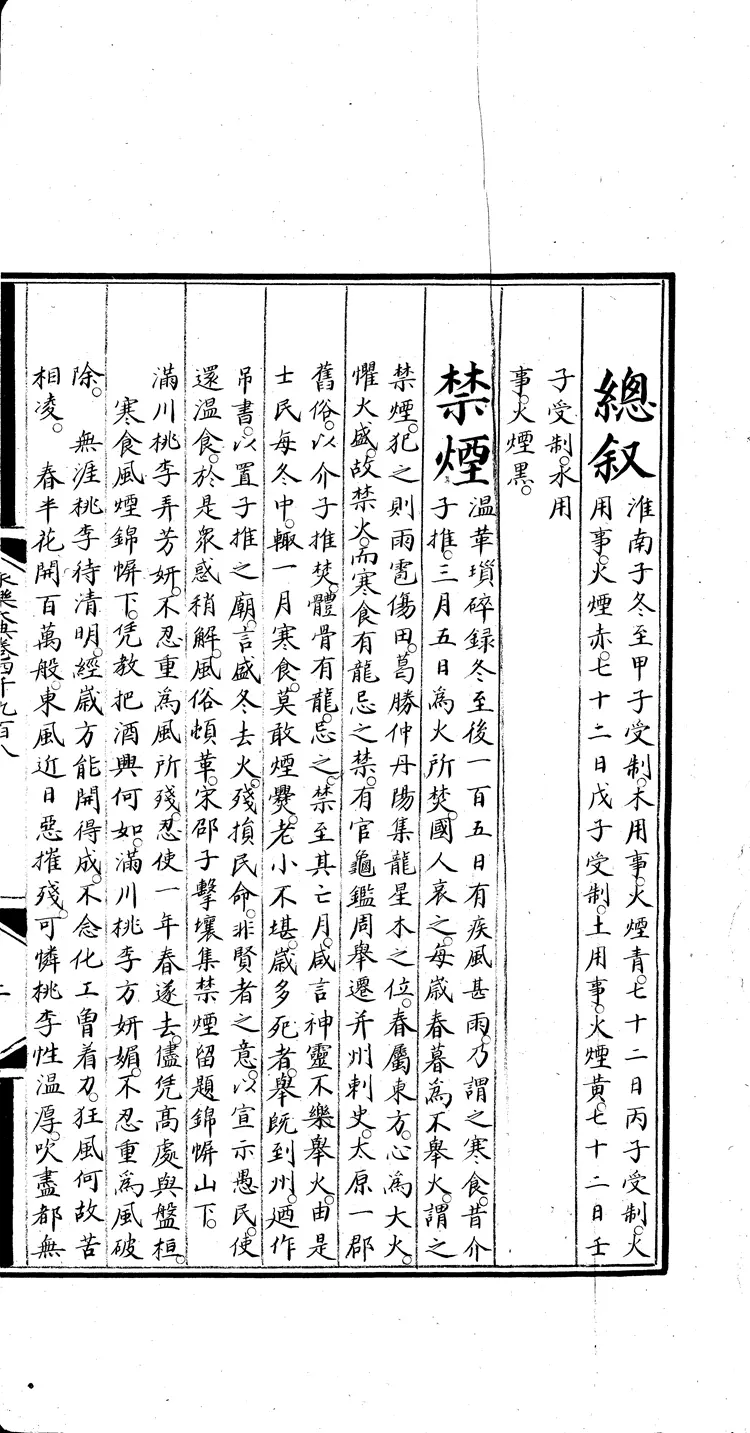 總叙
淮南子冬至甲子受制。木用事。火煙青。七十二日丙子受制。火
用事。火煙赤。七十二日戊子受制。土用事。火煙黃。七十二日壬
子受制。水用
事。火煙黑。
禁煙
温華瑣碎録冬至後一百五日有疾風甚雨。乃謂之寒食。昔介
子推。三月五日為火所焚。國人哀之。每嵗春暮為不舉火。謂之
禁煙。犯之則雨雹傷田。葛勝仲丹陽集龍星木之位。春屬東方。心為大火。
懼火盛。故禁火。而寒食有龍忌之禁。有官龜鑑周舉遷并州刺史。太原一郡
舊俗。以介子推焚。體骨有龍。忌之。禁至其亡月。咸言神靈不樂舉火。由是
士民每冬中。輙一月寒食。莫敢煙爨。老小不堪。嵗多死者。舉旣到州。廼作
吊書。以置子推之廟。言盛冬去火。殘損民命。非賢者之意。以宣示愚民。使
還温食。於是衆惑稍解。風俗頓革。宋邵子擊壤集禁煙留題錦幈山下。
滿川桃李弄芳妍。不忍重為風所殘。忍使一年春遂去。儘凭高處與盤桓。
寒食風煙錦幈下。凭教把酒興何如。滿川桃李方妍媚。不忍重為風破
除。　無涯桃李待清明。經嵗方能開得成。不念化工曾着力。狂風何故苦
相凌。　春半花開百萬般。東風近日惡摧殘。可憐桃李性温厚。吹盡都無
永樂大典卷四千九百八
二